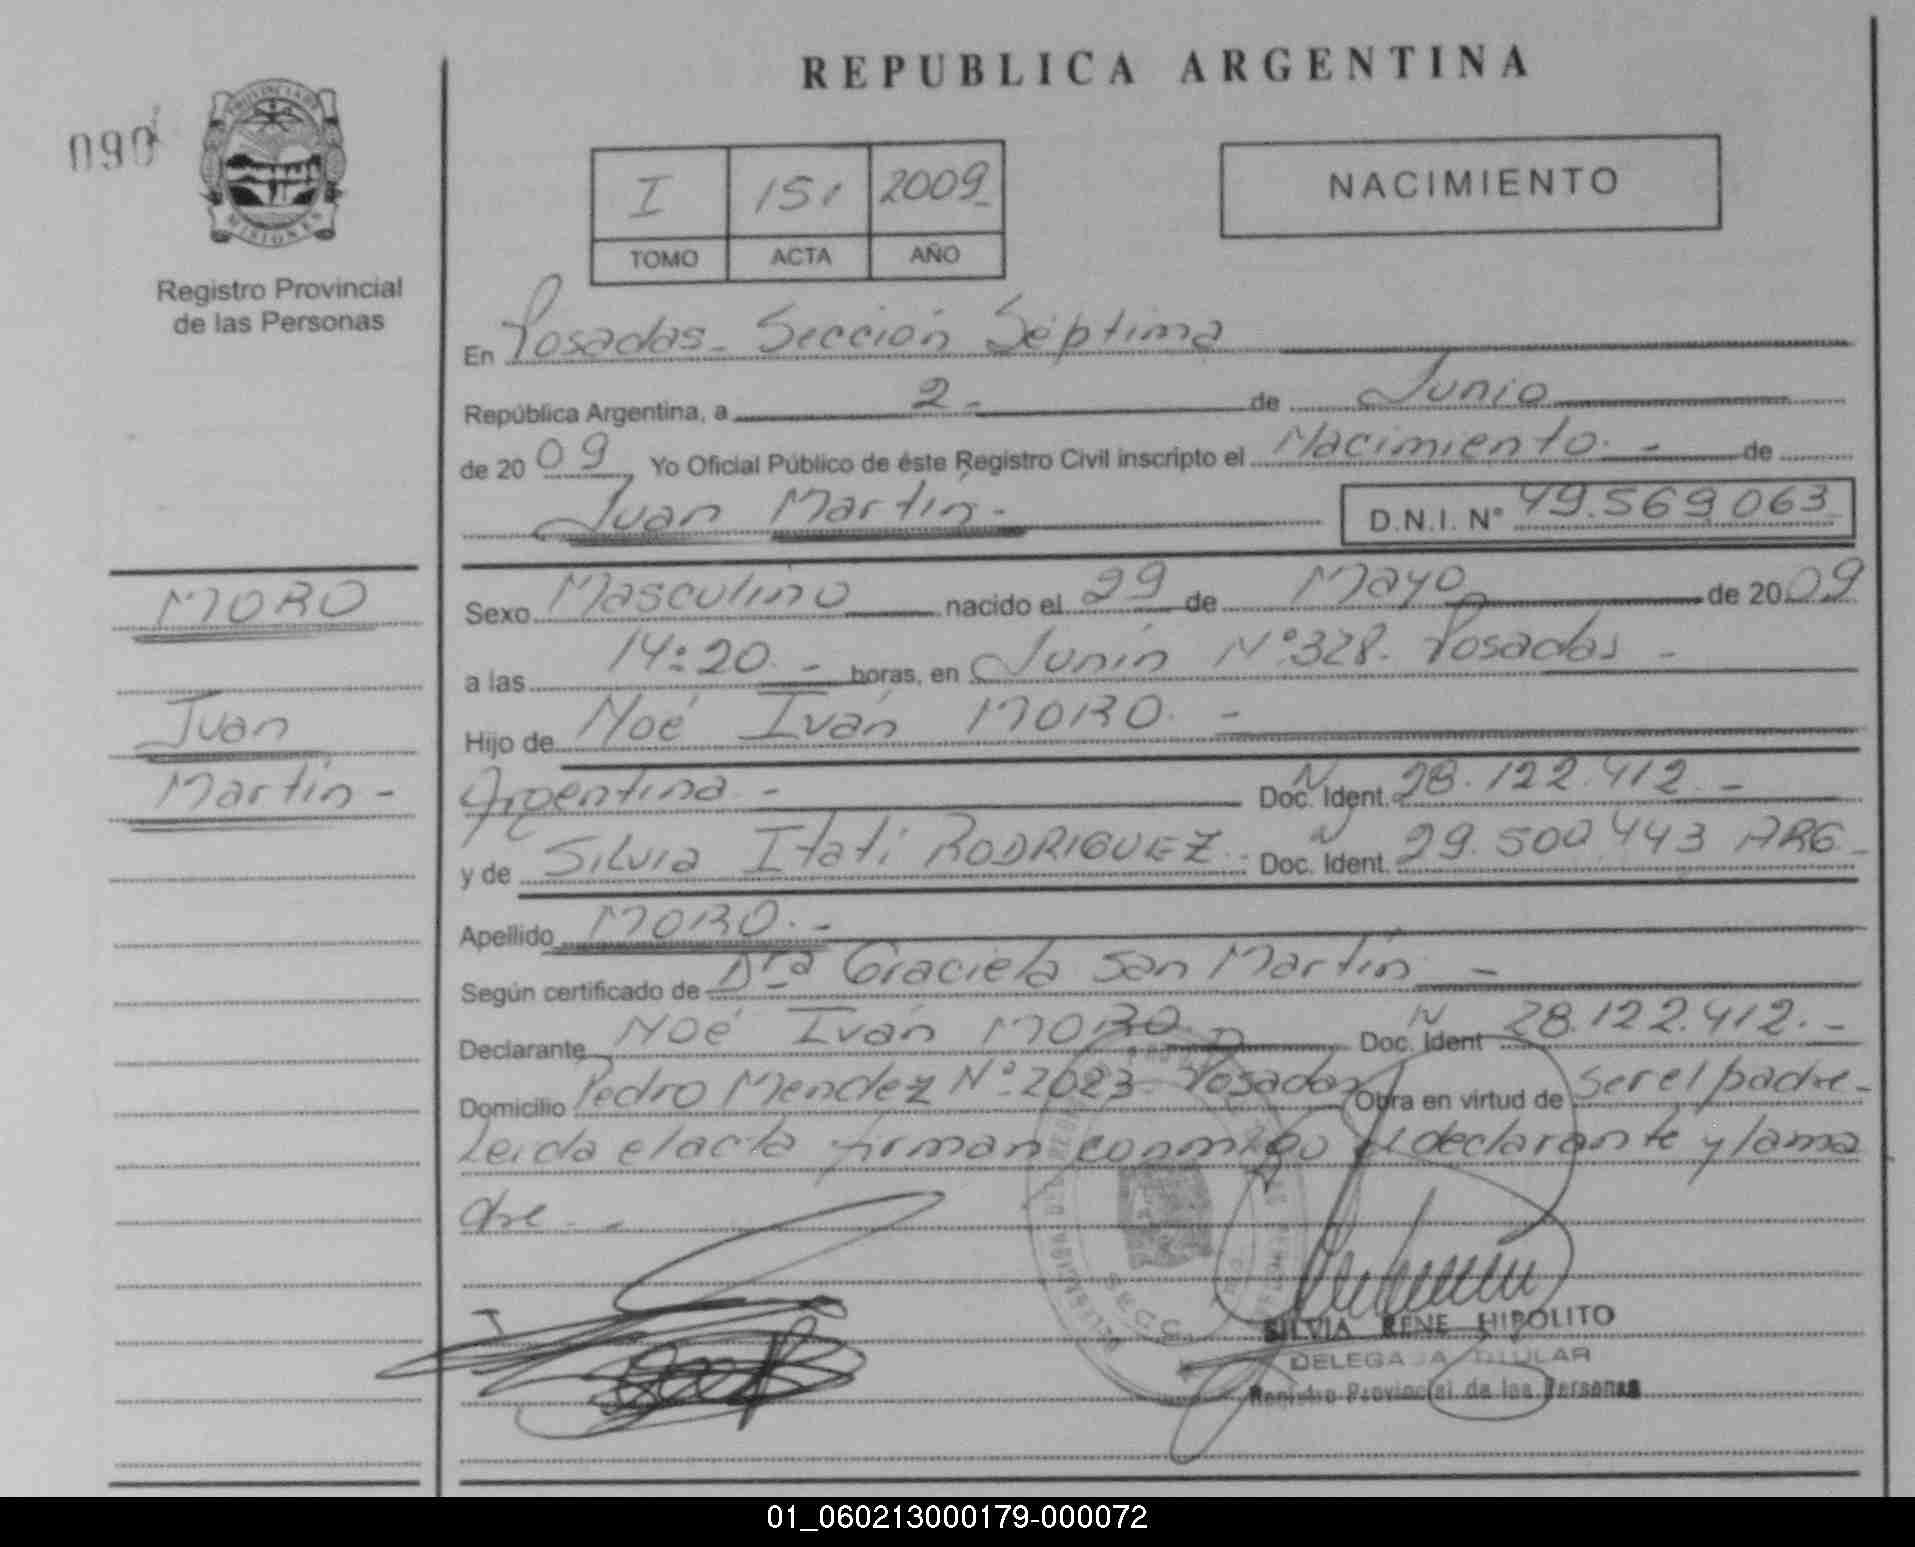 REPUBLICA ARGENTINA
090
PROVINCIA DE
MISIONES
I 151 2009
TOMO ACTA AÑO
NACIMIENTO
Registro Provincial
de las Personas
En Posadas - Sección Séptima
República Argentina, a 2 - de Junio
de 2009 Yo Oficial Público de éste Registro Civil inscripto el Nacimiento. - de
Juan Martín - D.N.I. N° 49.569.063
MORO
Sexo Masculino nacido el 29 de Mayo de 2009
a las 14:20. - horas, en Junín N° 328. Posadas -
Juan
Hijo de Noé Iván MORO. -
Martín -
Argentina - Doc. Ident. N 28.122.412. -
y de Silvia Itatí RODRIGUEZ - Doc. Ident. N 29.500.443 ARG -
Apellido MORO. -
Según certificado de Dra Graciela San Martín -
Declarante Noé Iván MORO Doc. Ident N 28.122.412. -
Domicilio Pedro Mendez N° 2023 - Posadas Obra en virtud de ser el padre -
Leida el acta firman conmigo el declarante y la ma
dre - -
SECC.
SILVIA RENE HIPOLITO
DELEGADA TITULAR
Registro Provincial de las Personas
01_060213000179-000072